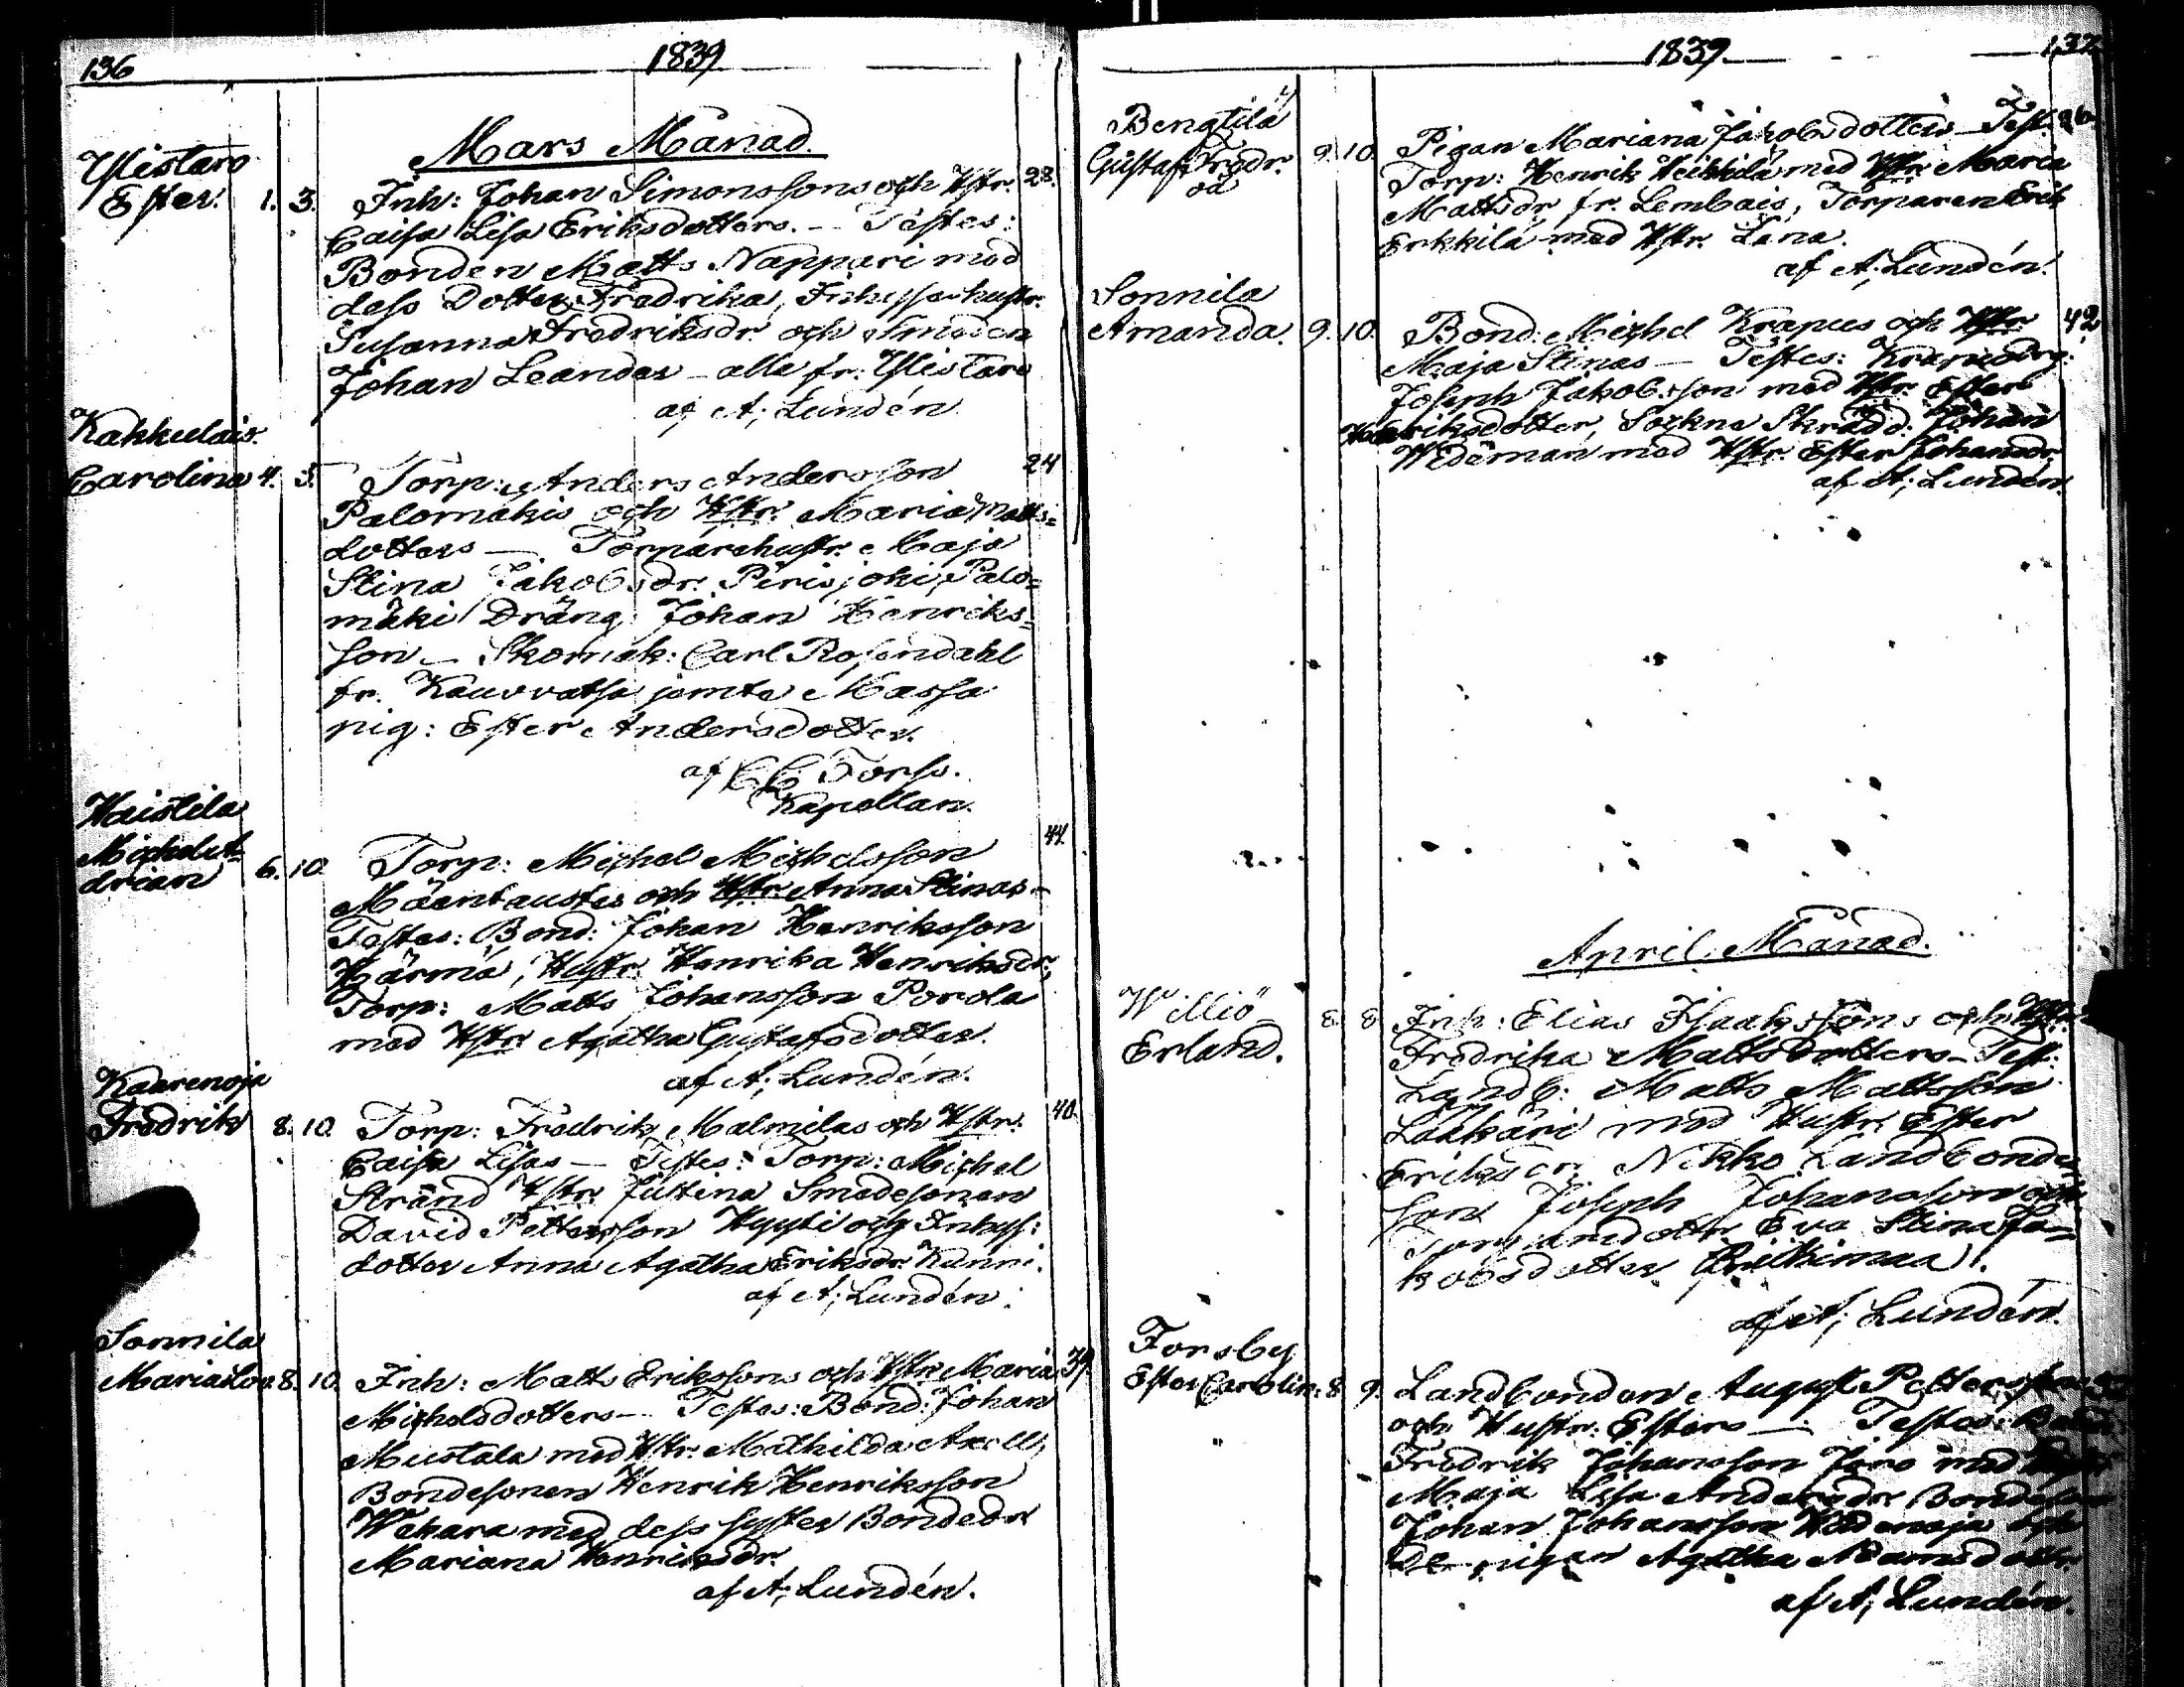 136 1839
Mars Månad.
Ylistaro
Ester. 1. 3. Inh: Johan Simonssons och Hstr. 28.
Caisa Lisa Eriksdotters. — Testes:
Bonden Matts Nappari med
dess Dotter Fredrika, Inhysehustr.
Susanna Fredriksdr. och Smeden
Johan Leander — alla fr. Ylistaro
af A; Lundén.
Kakkulais
Carolina 4. 5. Torp: Anders Andersson 24
Palomäkis och Hstr. Maria Matts=
dotters — Torparehustr. Maja
Stina Jakobsdr. Pirisjoki, Palo=
mäki Dräng: Johan Henriks=
son — Skomak: Carl Rosendahl
fr. Kauvatsa jemte Massa
pig: Ester Andersdotter.
af C C Forss.
Kapellan.
Haistila
Michel A=
drian 6. 10. Torp: Michel Michelsson 44.
Mäentaustas och Hstr. Anna Stinas —
Testes: Bond: Johan Henriksson
Härmä, Hustr. Henrika Henriksdr,
Torp: Matts Johansson Porola
med Hstr. Agatha Gustafsdotter.
af A; Lundén.
Kaarenoja
Fredrik 8. 10. Torp: Fredrik Malmilas och Hstr. 40.
Caisa Lisas — Testes: Torp: Michel
Strand Hstr. Justina Smedesonen
David Pettersson Hyyti och Inhys:
dotter Anna Agatha Eriksdr. Kanni.
af A; Lundén.
Sonnila
Maria Lov. 8. 10. Inh: Matts Erikssons och Hstr. Maria 39
Michelsdotters — Testes: Bond: Johan
Mustala med Hstr. Mathilda Axell,
Bondesonen Henrik Henriksson
Wehara med dess syster Bondedr
Mariana Henriksdr.
af A; Lundén.
1839. 137
Bengtilä
Gustaf Fredr. 9. 10. Pigan Mariana Jakobsdotters — Test. 26.
Torp: Henrik Heikkilä med Hstr. Maria
Mattsdr fr. Lembais, Torparen Erik
Erkkilä med Hstr. Lena.
af A; Lundén.
Sonnila
Amanda. 9. 10. Bond: Michel Krapus och Hstr. 42
Maja Stinas — Testes:
Joseph Jakobsson med Hstr. Ester
Henriksdotter, Sockne Skrädd: Johan
Wideman med Hstr. Ester Johansdr.
af A; Lundén.
April Månad.
Williö
Erland. 8. 8 Inh: Elias Isaakssons och Hstr.
Fredrika Mattsdotters — Test:
Landb: Matts Mattsson
Lähkäri med Hustr. Ester
Eriksdr. Nikko Landbonde
son Joseph Johansson och
dottr. Eva Stina Ja=
kobsdotter
af A; Lundén.
Forsby
Ester Carolin: 8 9. Landbonden August Petterssons
och Hustr. Esters — Testes:
Fredrik Johansson Jons med
Maja Lisa Andersdr. Bondeson
Johan Johansson
pigan Agatha Adamsdottr.
af A; Lundén.